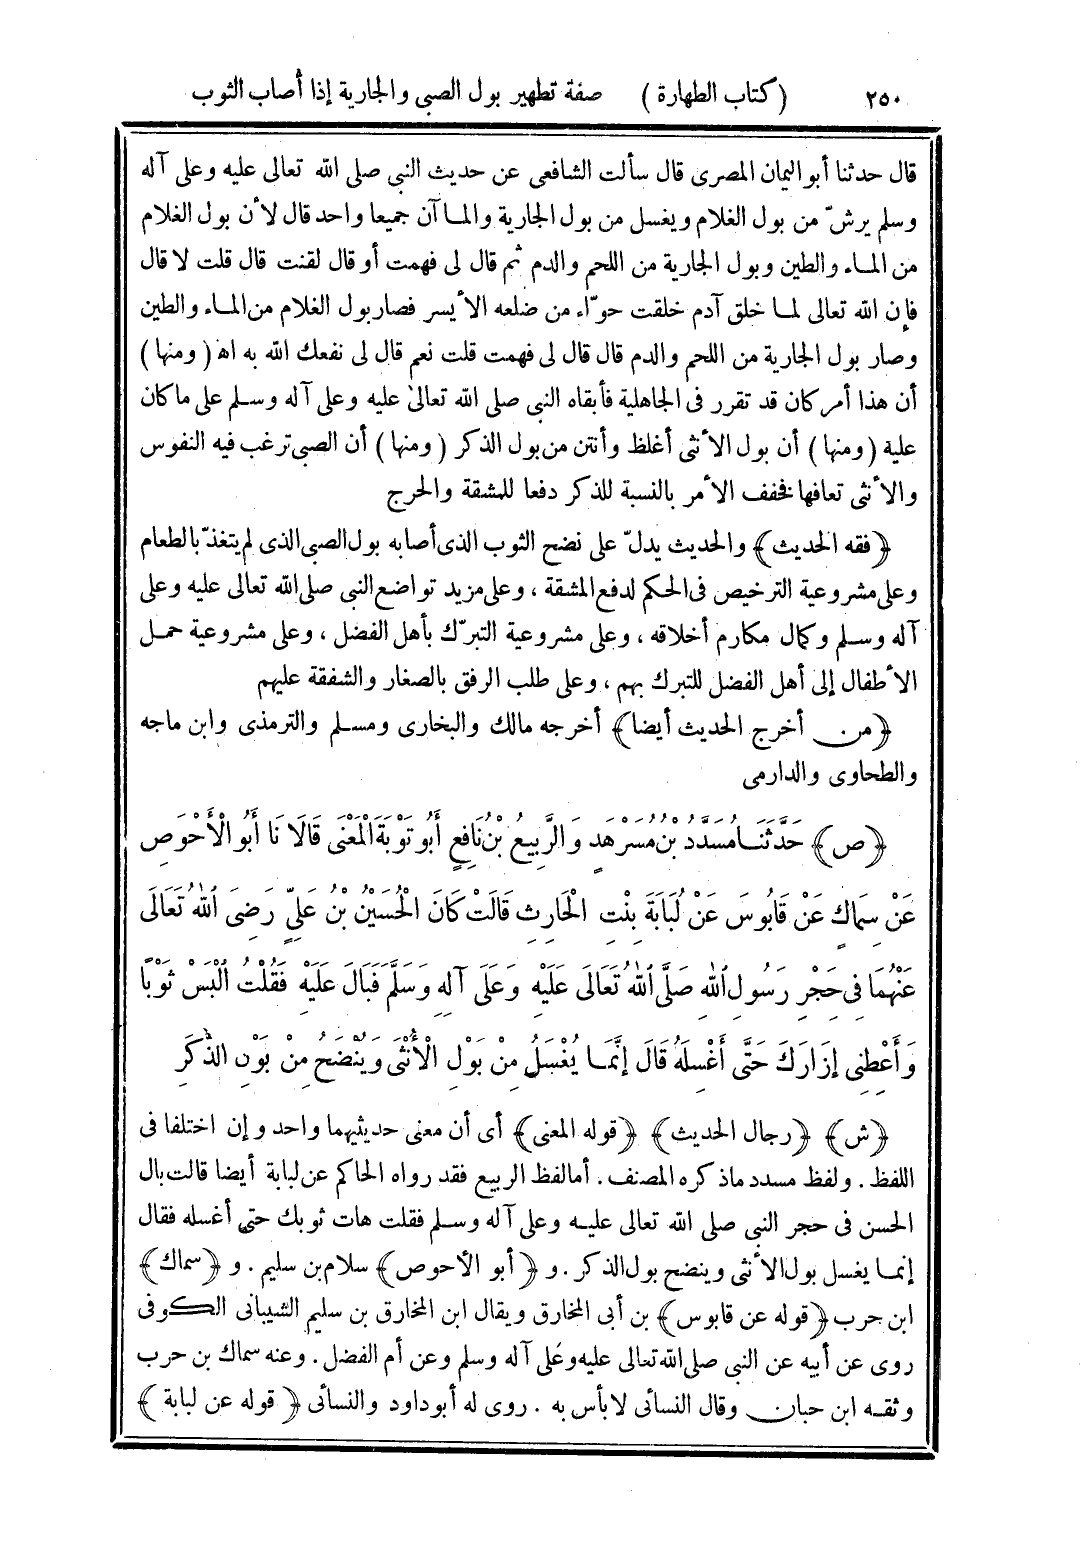 ٢٥٠ (كتاب الطهارة) صفة تطهير بول الصبي والجارية إذا أصاب الثوب
قال حدثنا أبو اليمان المصرى قال سألت الشافعى عن حديث النبى صلى الله تعالى عليه وعلى آله
وسلم يرشّ من بول الغلام ويغسل من بول الجارية والمـا آن جميعا واحد قال لأن بول الغلام
من المـاء والطين وبول الجارية من اللحم والدم ثم قال لى فهمت أو قال لقنت قال قلت لا قال
فإن الله تعالى لمـا خلق آدم خلقت حوّاء من ضلعه الأيسر فصار بول الغلام من المـاء والطين
وصار بول الجارية من اللحم والدم قال قال لى فهمت قلت نعم قال لى نفعك الله به اهـ (ومنها)
أن هذا أمر كان قد تقرر فى الجاهلية فأبقاه النبى صلى الله تعالى عليه وعلى آله وسـلم على ما كان
علية (ومنها) أن بول الأنثى أغلظ وأنتن من بول الذكر (ومنها) أن الصبى ترغب فيه النفوس
والأنثى تعافها فخفف الأمر بالنسبة للذكر دفعا للمشقة والحرج
﴿فقه الحديث﴾ والحديث يدلّ على نضح الثوب الذى أصابه بول الصبى الذى لم يتغذّ بالطعام
وعلى مشروعية الترخيص فى الحكم لدفع المشقة ، وعلى مزيد تواضع النبى صلى الله تعالى عليه وعلى
آله وسـلم وكمال مكارم أخلاقه ، وعلى مشروعية التبرّك بأهل الفضل ، وعلى مشروعية حمـل
الأطفال إلى أهل الفضل للتبرك بهم ، وعلى طلب الرفق بالصغار والشفقة عليهم
﴿من أخرج الحديث أيضا﴾ أخرجه مالك والبخارى ومسـلم والترمذى وابن ماجه
والطحاوى والدارمى
﴿ص﴾ حَدَّثَنَا مُسَدَّدُ بْنُ مُسَرْهَدٍ وَالرَّبِيعُ بْنُ نَافِعٍ أَبُو تَوْبَةَ الْمَعْنَى قَالَا نَا أَبُو الْأَحْوَصِ
عَنْ سِمَاكٍ عَنْ قَابُوسَ عَنْ لُبَابَةَ بِنْتِ الْحَارِثِ قَالَتْ كَانَ الْحُسَيْنُ بْنُ عَلِيٍّ رَضِىَ اللهُ تَعَالَى
عَنْهُمَا فِى حَجْرِ رَسُولِ اللهِ صَلَّى اللهُ تَعَالَى عَلَيْهِ وَعَلَى آلِهِ وَسَلَّمَ فَبَالَ عَلَيْهِ فَقُلْتُ الْبَسْ ثَوْبًا
وَأَعْطِنِى إِزَارَكَ حَتَّى أَغْسِلَهُ قَالَ إِنَّمَـا يُغْسَلُ مِنْ بَوْلِ الْأُنْثَى وَيُنْضَحُ مِنْ بَوْلِ الذَّكَرِ
﴿ش﴾ ﴿رجال الحديث﴾ ﴿قوله المعنى﴾ أى أن معنى حديثيهما واحد وإن اختلفا فى
اللفظ . ولفظ مسدد ماذكره المصنف . أما لفظ الربيع فقد رواه الحاكم عن لبابة أيضا قالت بال
الحسن فى حجر النبى صلى الله تعالى عليـه وعلى آله وسـلم فقلت هات ثوبك حتى أغسله فقال
إنمـا يغسل بول الأنثى وينضح بول الذكر . و ﴿أبو الأحوص﴾ سلام بن سليم . و ﴿سماك﴾
ابن حرب ﴿قوله عن قابوس﴾ بن أبى المخارق ويقال ابن المخارق بن سليم الشيبانى الكوفى
روى عن أبيه عن النبى صلى الله تعالى عليه وعلى آله وسلم وعن أم الفضل . وعنه سماك بن حرب
وثقـه ابن حبان وقال النسائى لا بأس به . روى له أبو داود والنسائى ﴿قوله عن لبابة﴾